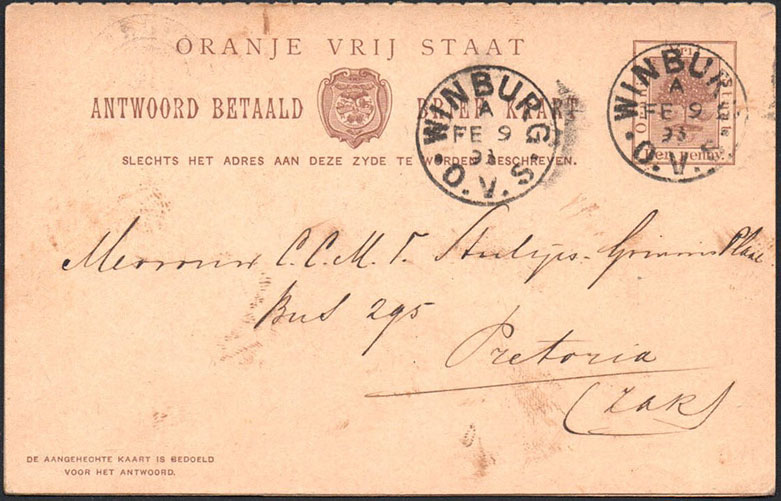 ORANJE VRIJ STAAT
ANTWOORD BETAALD BRIEF KAART
SLECHTS HET ADRES AAN DEZE ZYDE TE WORDEN BESCHREVEN.
WINBURG
A
FE 9
93
O.V.S.
WINBURG
A
FE 9
93
O.V.S.
Een penny.
Mevrouw C.C.M.
Bus 295
Pretoria
(ZAR)
DE AANGEHECHTE KAART IS BEDOELD
VOOR HET ANTWOORD.